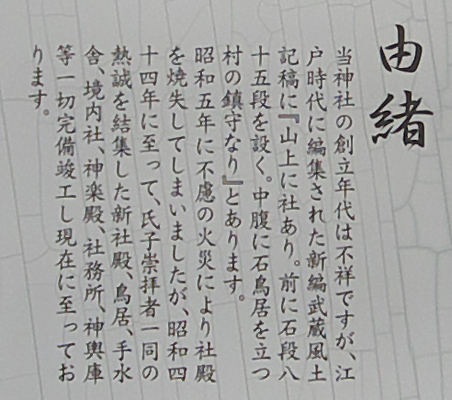 由緒
当神社の創立年代は不祥ですが、江
戸時代に編集された新編武蔵風土
記稿に『山上に社あり。前に石段八
十五段を設く。中腹に石鳥居を立つ
村の鎮守なり』とあります。
昭和五年に不慮の火災により社殿
を焼失してしまいましたが、昭和四
十四年に至って、氏子崇拝者一同の
熱誠を結集した新社殿、鳥居、手水
舎、境内社、神楽殿、社務所、神輿庫
等一切完備竣工し現在に至ってお
ります。